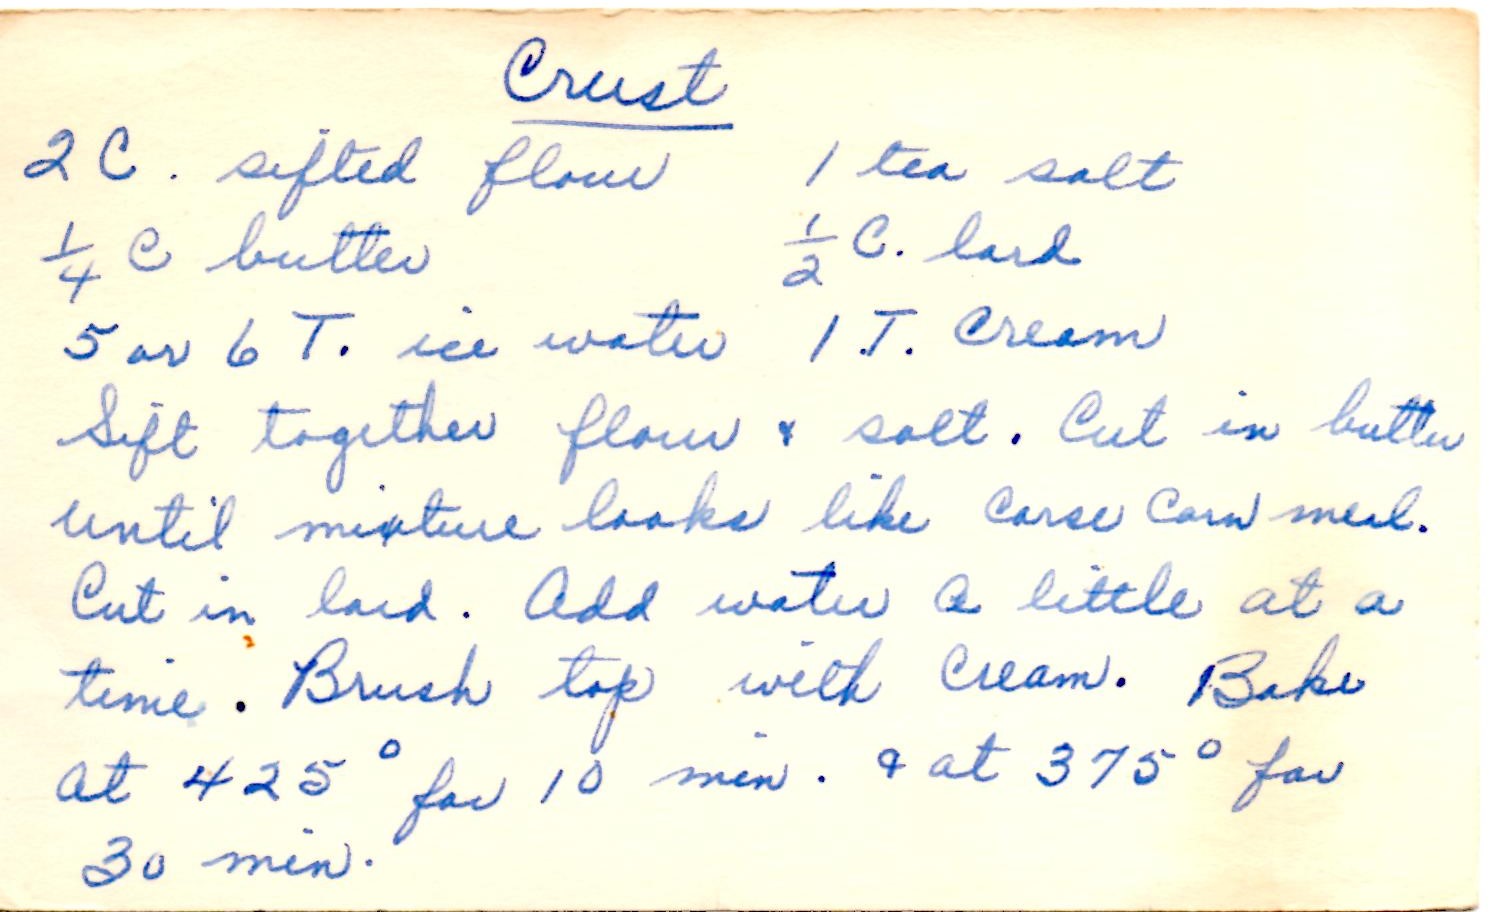 Crust
2 C. sifted flour 1 tea salt
1/4 C butter 1/2 C. lard
5 or 6 T. ice water 1 T. Cream
Sift together flour & salt. Cut in butter
until mixture looks like corse corn meal.
Cut in lard. Add water a little at a
time. Brush top with cream. Bake
at 425° for 10 min. & at 375° for
30 min.